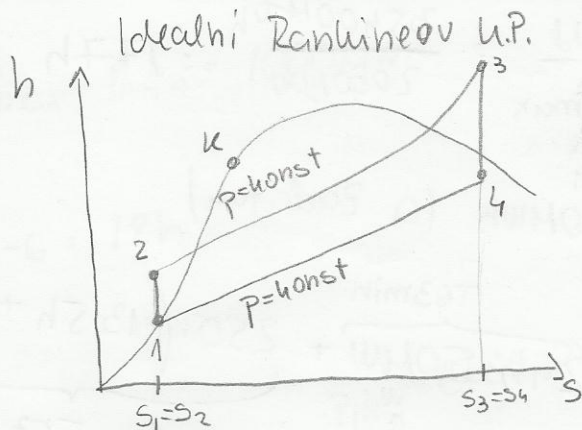 Idealni Rankineov K.P.
h
3
K
p=konst
2
4
p=konst
1
s
S₁=S₂
S₃=S₄